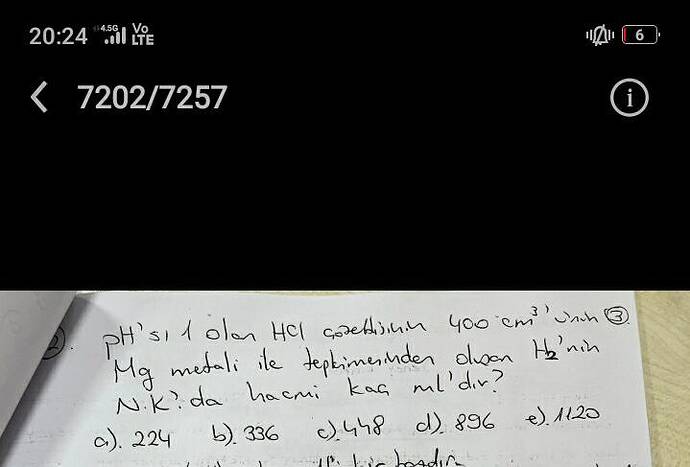 20:24 4.5G Vo LTE 6
7202/7257
2). pH'sı 1 olan HCl çözeltisinin 400 cm³'ünün 3
Mg metali ile tepkimesinden oluşan H₂'nin
N.K?.da hacmi kaç ml'dir?
a). 224 b). 336 c). 448 d). 896 e). 1120